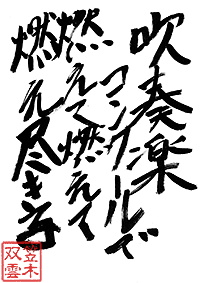 吹奏楽
コンクールで
燃えて燃えて
燃え尽き号
笠木
双雲